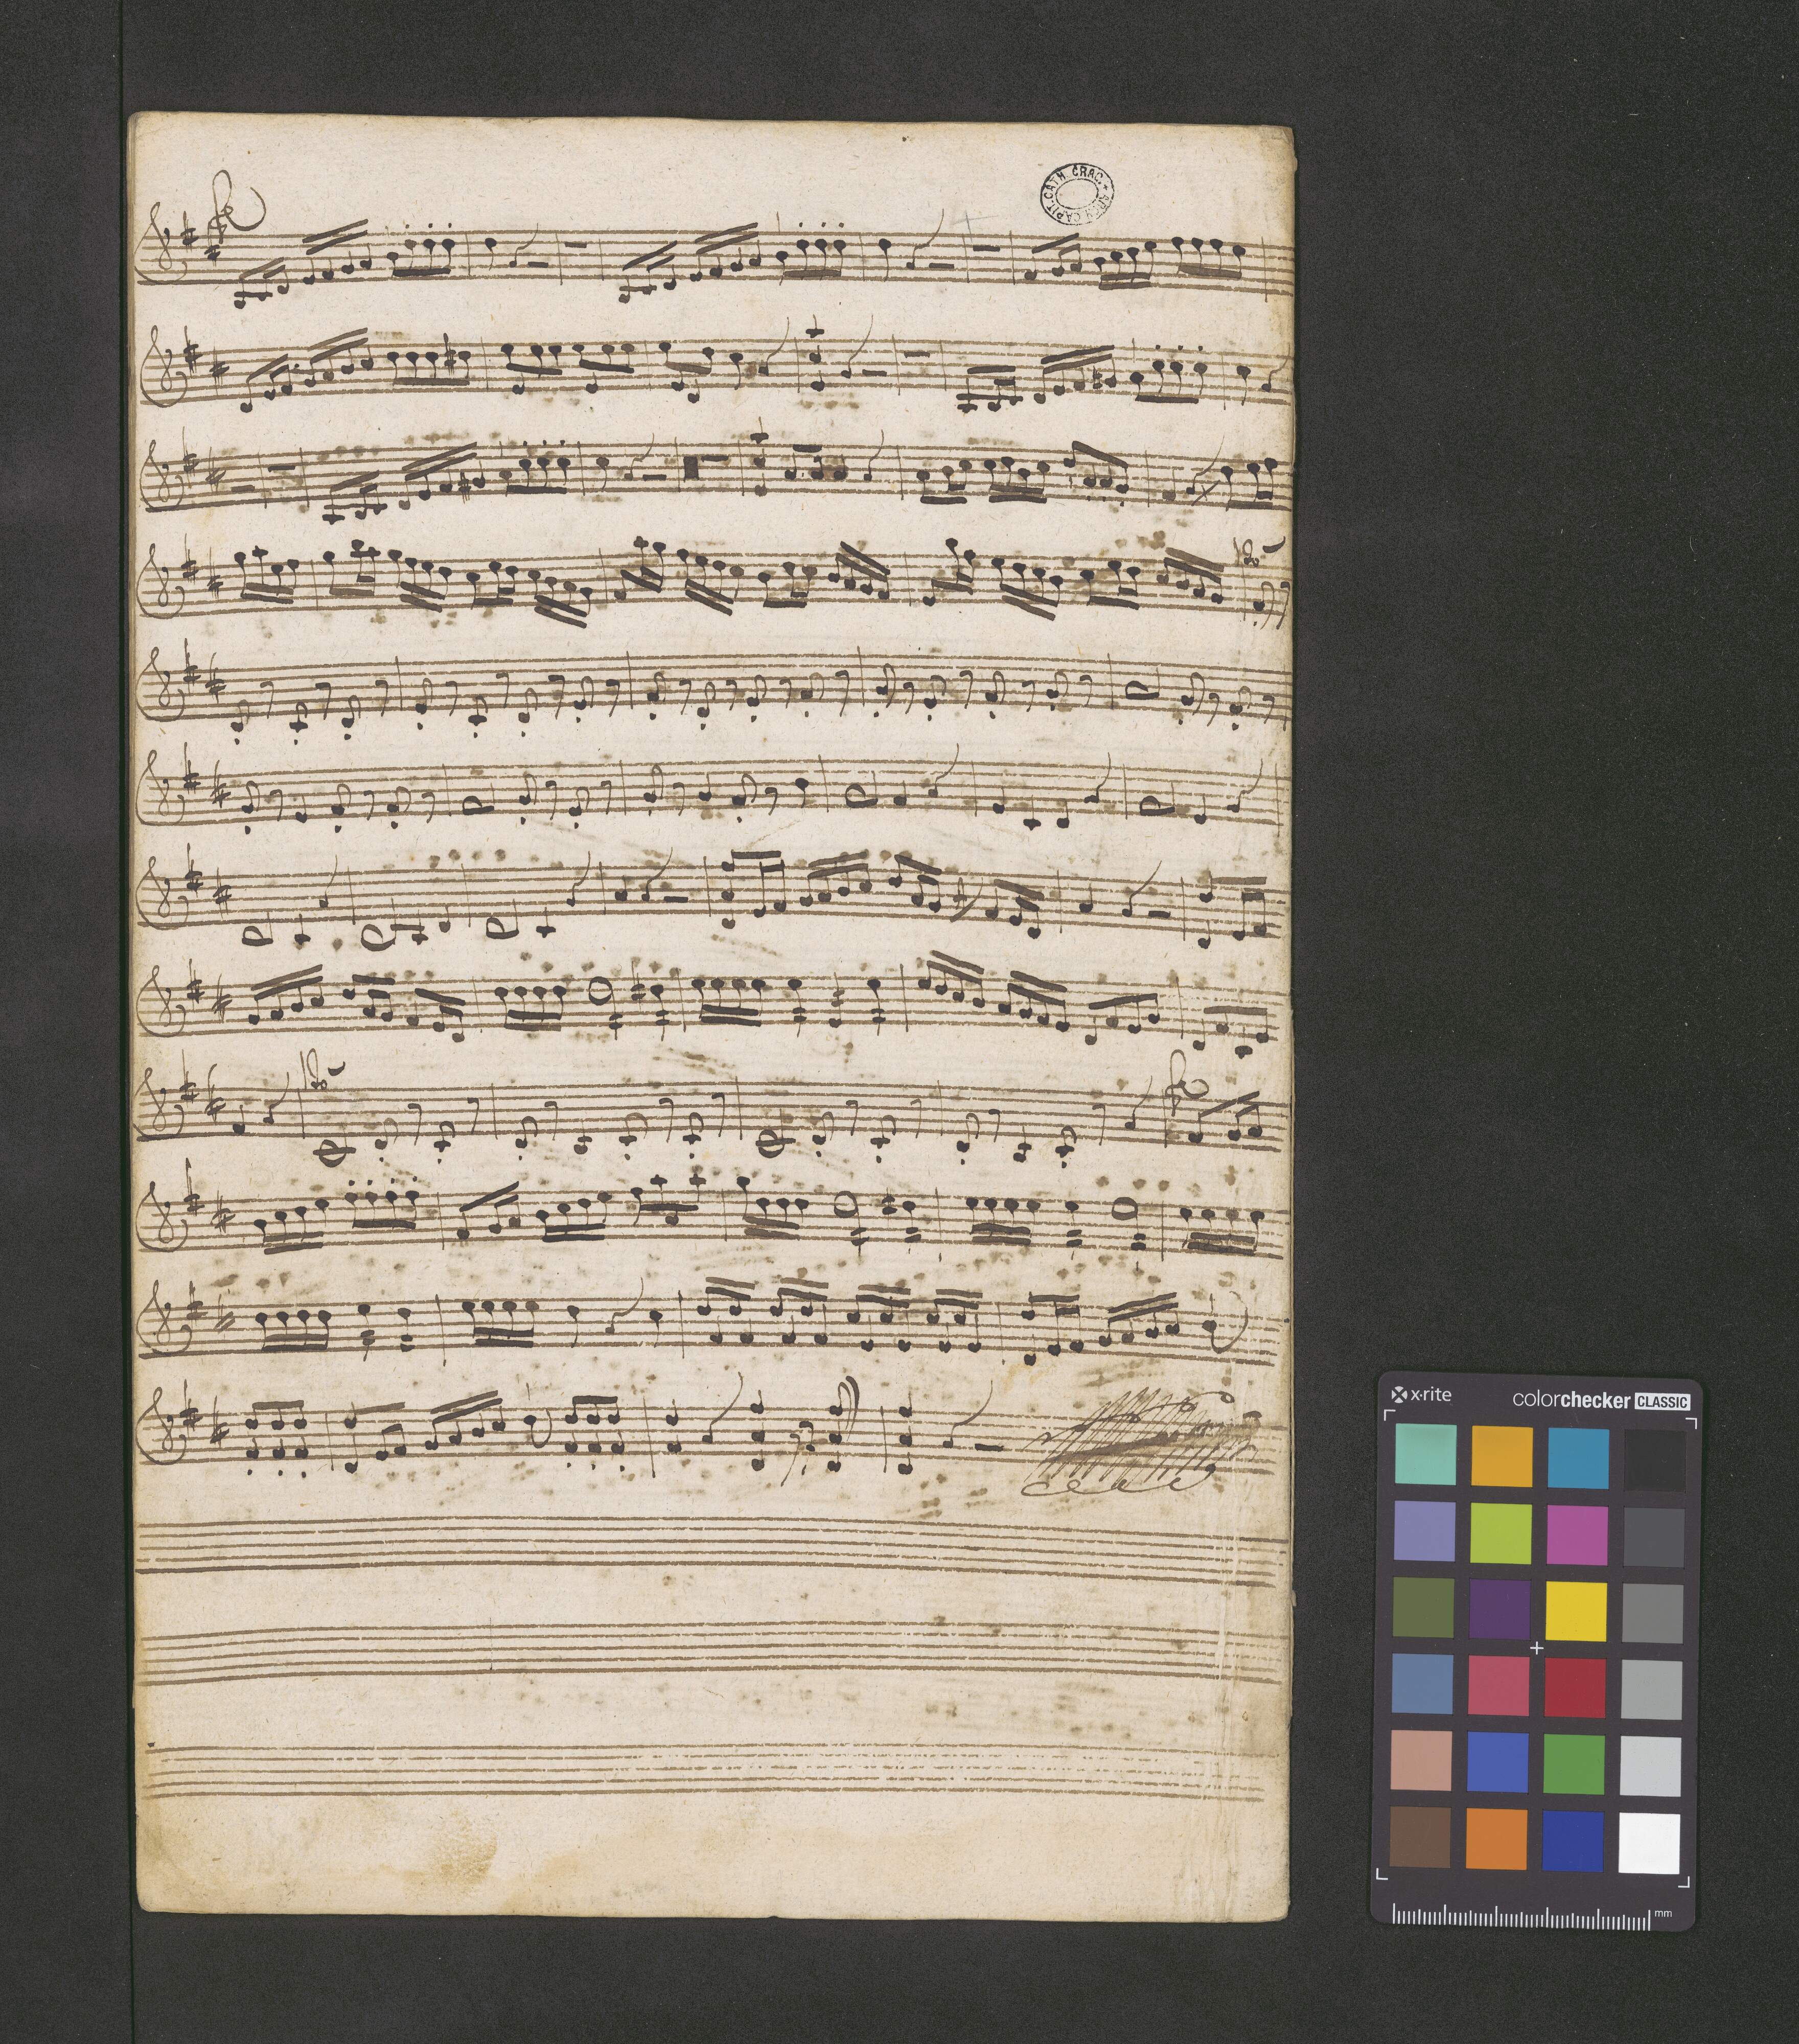 fe
ARCH. CAPIT. CATH. CRAC.
po
po
fe
x-rite colorchecker CLASSIC
mm